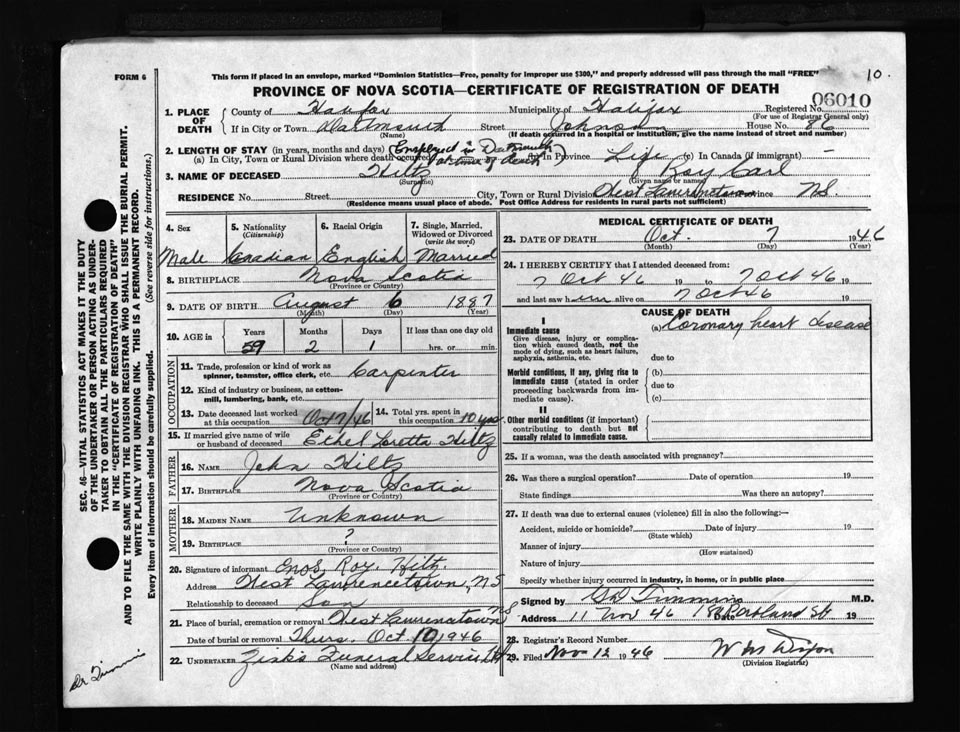 10.
FORM 6
This form if placed in an envelope, marked "Dominion Statistics—Free, penalty for improper use $300," and properly addressed will pass through the mail "FREE"
PROVINCE OF NOVA SCOTIA—CERTIFICATE OF REGISTRATION OF DEATH
06010
1. PLACE OF DEATH County of Halifax Municipality of Halifax Registered No.
(For use of Registrar General only)
If in City or Town Dartmouth Street Johnson House No. 86
(Name) (If death occurred in a hospital or institution, give the name instead of street and number)
2. LENGTH OF STAY (in years, months and days) (Employed in Dartmouth
(a) In City, Town or Rural Division where death occurred at time of death) (b) In Province Life (c) In Canada (if immigrant) —
3. NAME OF DECEASED Hiltz Roy Carl
(Surname) (Given name or names)
RESIDENCE No. Street City, Town or Rural Division West Lawrencetown Province N.S.
(Residence means usual place of abode. Post Office Address for residents in rural parts not sufficient)
4. Sex
Male
5. Nationality (Citizenship)
Canadian
6. Racial Origin
English
7. Single, Married, Widowed or Divorced (write the word)
Married
8. BIRTHPLACE Nova Scotia
(Province or Country)
9. DATE OF BIRTH August 6 1887
(Month) (Day) (Year)
10. AGE in Years Months Days If less than one day old
59 2 1 hrs. or min.
OCCUPATION
11. Trade, profession or kind of work as spinner, teamster, office clerk, etc. Carpenter
12. Kind of industry or business, as cotton-mill, lumbering, bank, etc.
13. Date deceased last worked at this occupation Oct 7/46 14. Total yrs. spent in this occupation 10 yrs.
15. If married give name of wife or husband of deceased Ethel Loretta Hiltz
FATHER
16. NAME John Hiltz
17. BIRTHPLACE Nova Scotia
(Province or Country)
MOTHER
18. MAIDEN NAME Unknown
19. BIRTHPLACE ?
(Province or Country)
20. Signature of informant Enos Roy Hiltz
Address West Lawrencetown, NS
Relationship to deceased Son
21. Place of burial, cremation or removal West Lawrencetown NS
Date of burial or removal Thurs. Oct. 10 1946
22. UNDERTAKER Zink's Funeral Service
(Name and address)
MEDICAL CERTIFICATE OF DEATH
23. DATE OF DEATH Oct. 7 1946
(Month) (Day) (Year)
24. I HEREBY CERTIFY that I attended deceased from:
7 Oct 46 19 to 7 Oct 46 19
and last saw him alive on 7 Oct 46 19
CAUSE OF DEATH
I
Immediate cause (a) Coronary heart disease
Give disease, injury or complication which caused death, not the mode of dying, such as heart failure, asphyxia, asthenia, etc.
due to
Morbid conditions, if any, giving rise to immediate cause (stated in order proceeding backwards from immediate cause).
(b)
due to
(c)
II
Other morbid conditions (if important) contributing to death but not causally related to immediate cause.
25. If a woman, was the death associated with pregnancy?
26. Was there a surgical operation? Date of operation 19
State findings Was there an autopsy?
27. If death was due to external causes (violence) fill in also the following:—
Accident, suicide or homicide? Date of injury 19
(State which)
Manner of injury
(How sustained)
Nature of injury
Specify whether injury occurred in industry, in home, or in public place
Signed by Timmins M.D.
Address 11 Nov 46 Portland St Date 19
28. Registrar's Record Number
29. Filed Nov 12 1946 W M Dixon
(Division Registrar)
SEC. 46—VITAL STATISTICS ACT MAKES IT THE DUTY
OF THE UNDERTAKER OR PERSON ACTING AS UNDER-
TAKER TO OBTAIN ALL THE PARTICULARS REQUIRED
IN THE "CERTIFICATE OF REGISTRATION OF DEATH"
AND TO FILE THE SAME WITH THE DIVISION REGISTRAR WHO SHALL ISSUE THE BURIAL PERMIT.
WRITE PLAINLY WITH UNFADING INK. THIS IS A PERMANENT RECORD.
Every item of information should be carefully supplied. (See reverse side for instructions.)